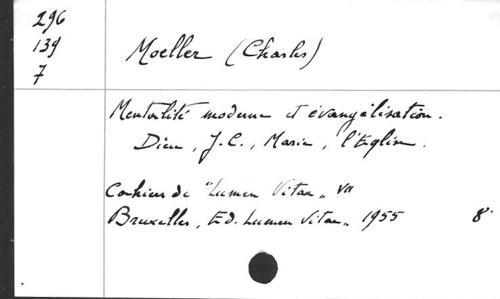 296
139
7
Moeller (Charles)
Mentalité moderne et évangélisation.
Dieu, J.C., Marie, l'Eglise.
Cahiers de "Lumen Vitae" VII
Bruxelles, Ed. Lumen Vitae, 1955 8°